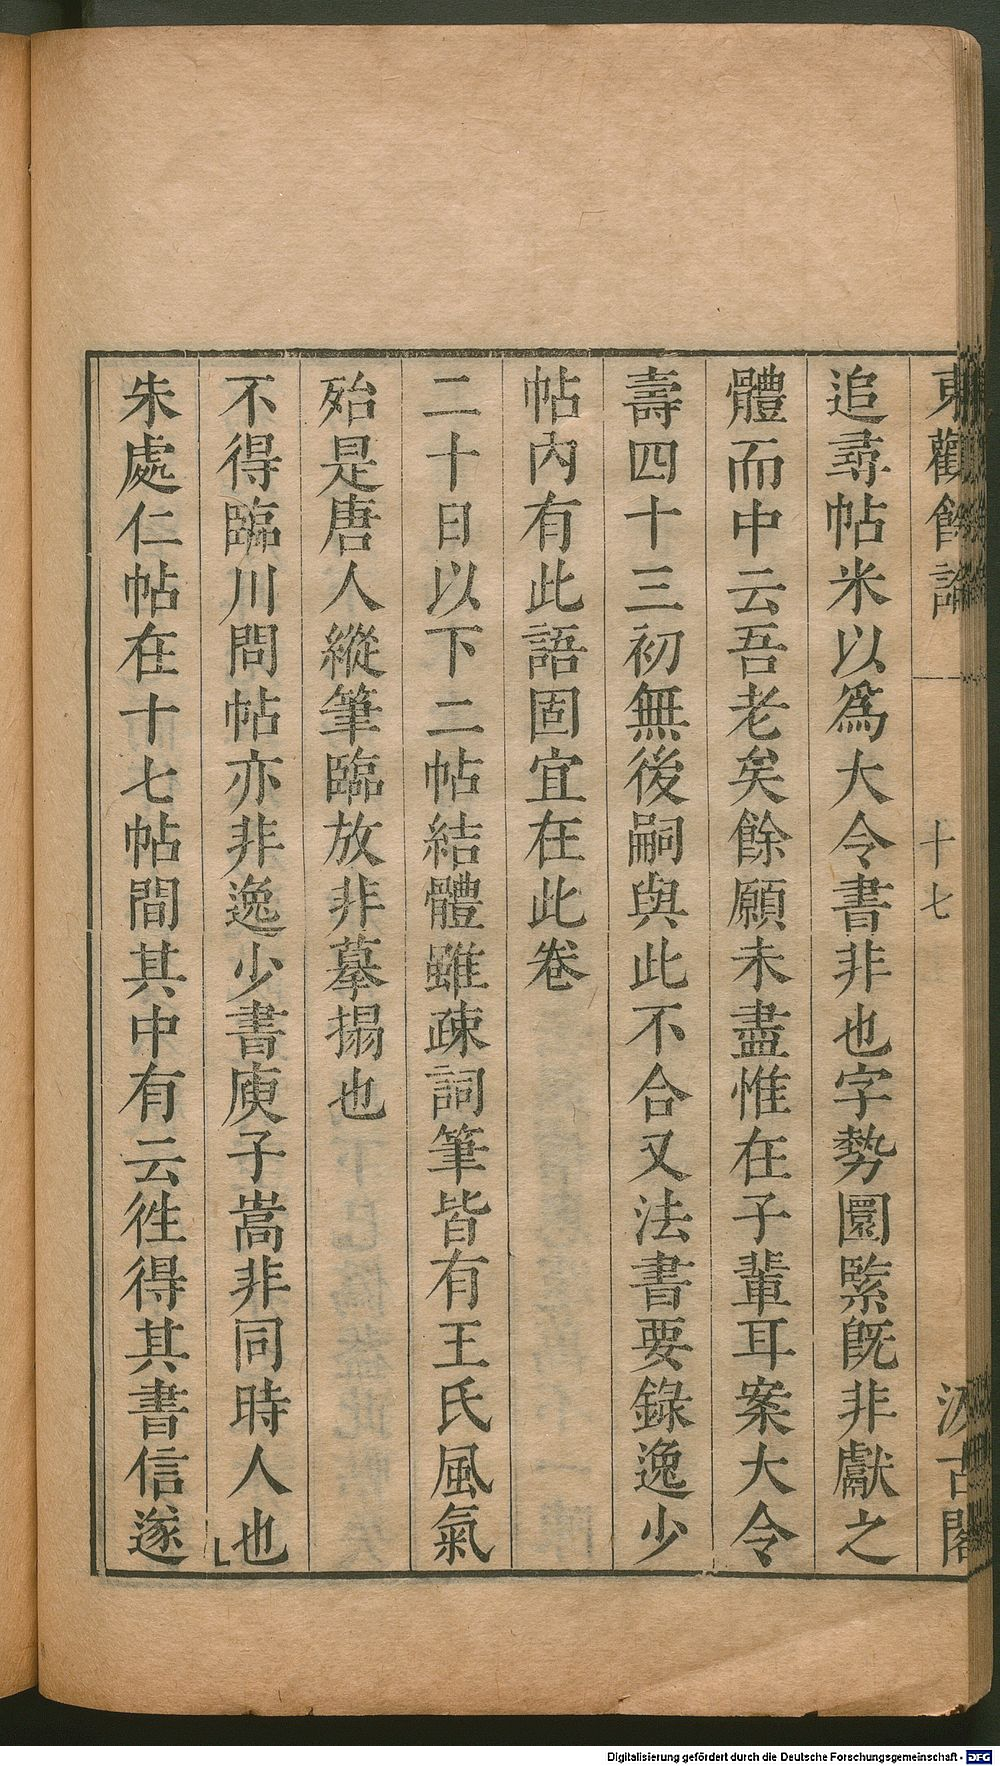 東觀餘論
十七
汲古閣
追尋帖米以爲大令書非也字勢圜緊旣非獻之
體而中云吾老矣餘願未盡惟在子輩耳案大令
壽四十三初無後嗣與此不合又法書要錄逸少
帖內有此語固宜在此卷
二十日以下二帖結體雖疎詞筆皆有王氏風氣
殆是唐人縱筆臨放非摹搨也
不得臨川問帖亦非逸少書庾子嵩非同時人也
朱處仁帖在十七帖間其中有云徃得其書信遂
Digitalisierung gefördert durch die Deutsche Forschungsgemeinschaft - DFG